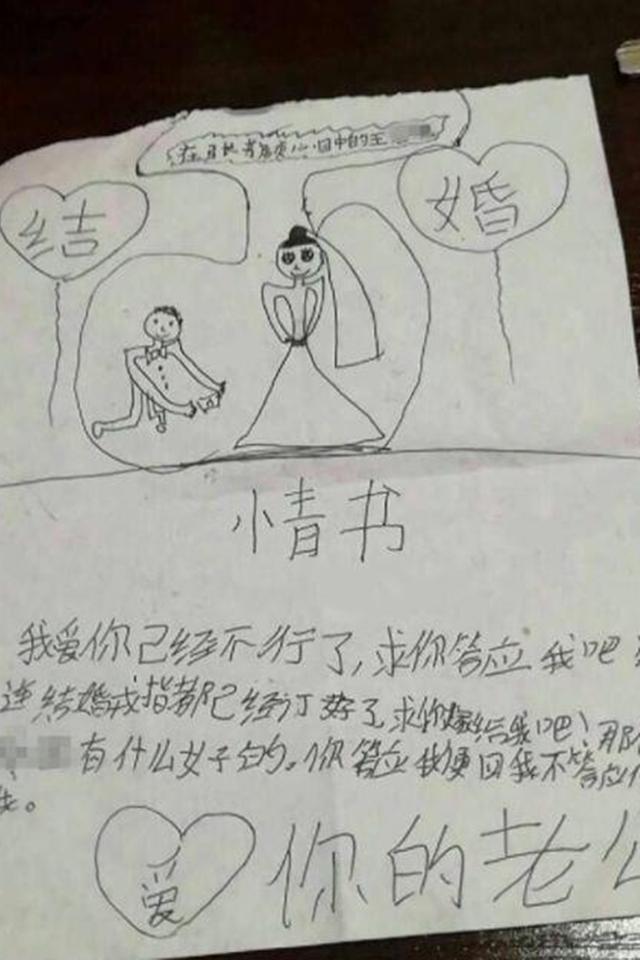 心目中的王
结 婚
情书
我爱你已经不行了,求你答应我吧
连结婚戒指都已经订好了求你嫁给我吧!那
有什么女子的。你答应我便回我不答应
爱 你的老公